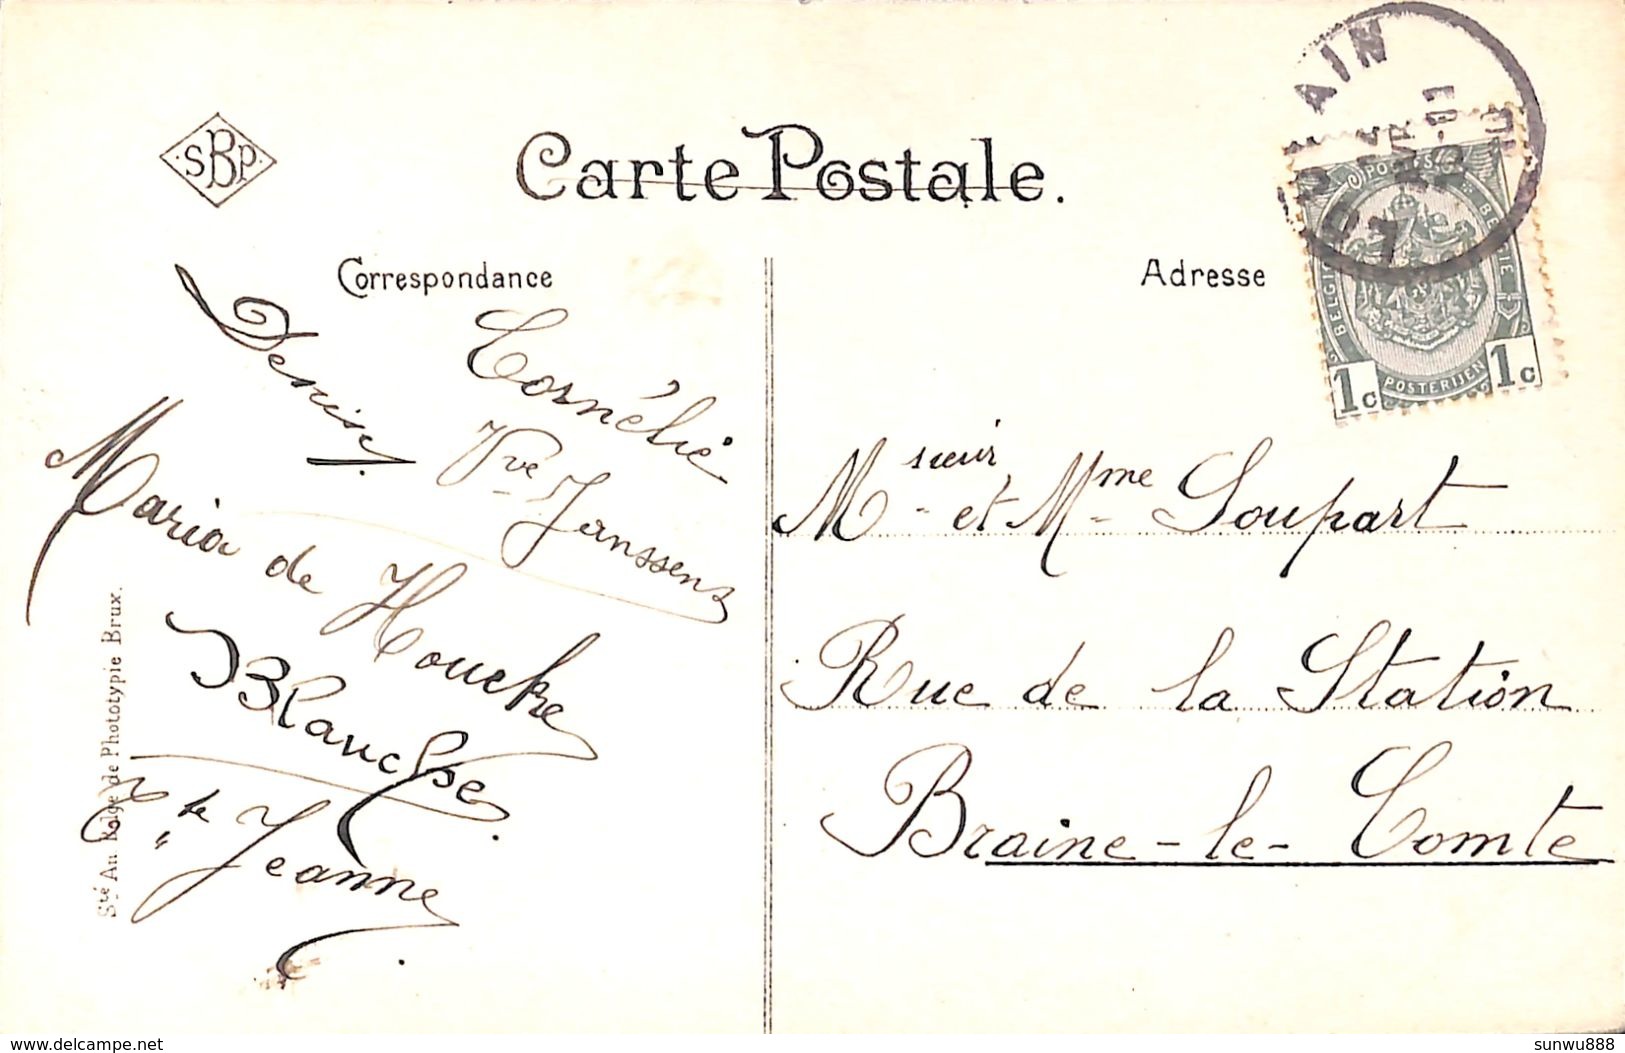 SBP
Carte Postale.
Correspondance
Adresse
Denise
Cornélie
Vve Janssens
Maria de Houcke
Blanche.
Jeanne.
Sté An Belge de Phototypie Brux.
BELGIQUE
POSTES
BELGIE
POSTERIJEN
1c 1c
Msieur et Mme Soupart
Rue de la Station
Braine-le-Comte
delcampe.net
sunwu888